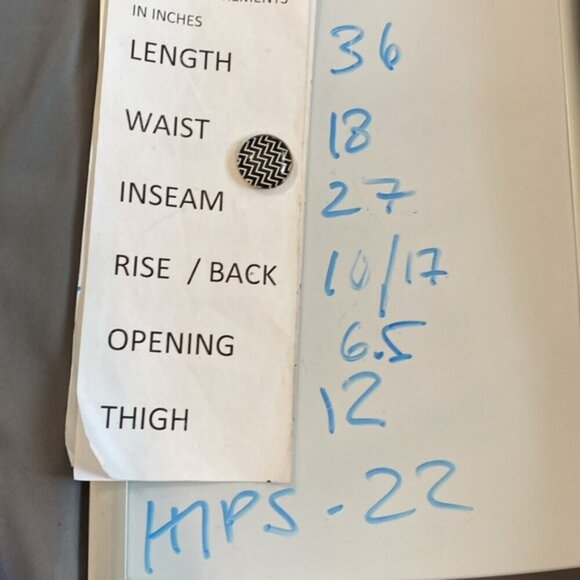 IN INCHES
LENGTH 36
WAIST 18
INSEAM 27
RISE / BACK 10/17
OPENING 6.5
THIGH 12
HIPS - 22